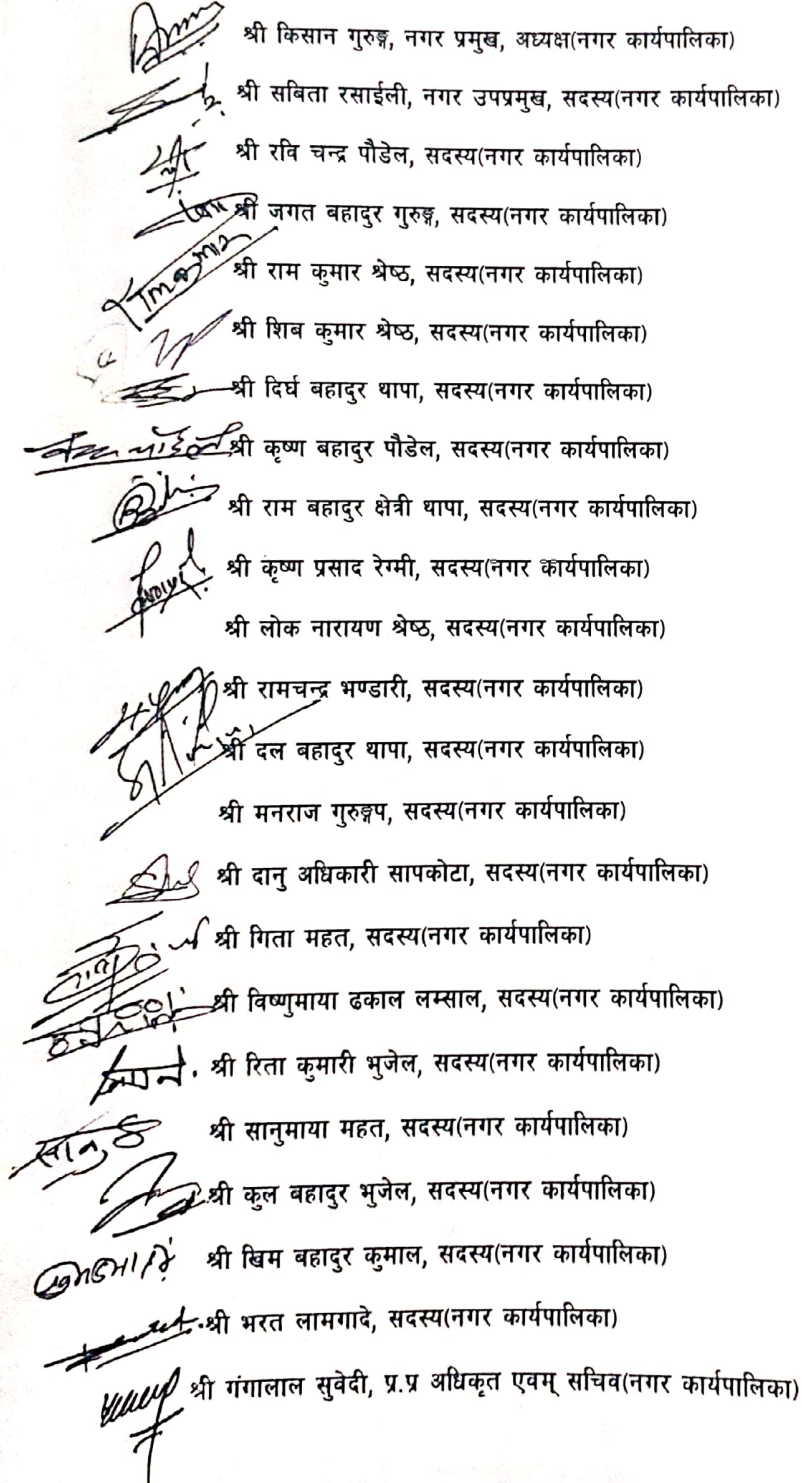 श्री किसान गुरुङ्ग, नगर प्रमुख, अध्यक्ष(नगर कार्यपालिका)
श्री सबिता रसाईली, नगर उपप्रमुख, सदस्य(नगर कार्यपालिका)
श्री रवि चन्द्र पौडेल, सदस्य(नगर कार्यपालिका)
श्री जगत बहादुर गुरुङ्ग, सदस्य(नगर कार्यपालिका)
श्री राम कुमार श्रेष्ठ, सदस्य(नगर कार्यपालिका)
श्री शिब कुमार श्रेष्ठ, सदस्य(नगर कार्यपालिका)
श्री दिर्घ बहादुर थापा, सदस्य(नगर कार्यपालिका)
श्री कृष्ण बहादुर पौडेल, सदस्य(नगर कार्यपालिका)
श्री राम बहादुर क्षेत्री थापा, सदस्य(नगर कार्यपालिका)
श्री कृष्ण प्रसाद रेग्मी, सदस्य(नगर कार्यपालिका)
श्री लोक नारायण श्रेष्ठ, सदस्य(नगर कार्यपालिका)
श्री रामचन्द्र भण्डारी, सदस्य(नगर कार्यपालिका)
श्री दल बहादुर थापा, सदस्य(नगर कार्यपालिका)
श्री मनराज गुरुङ्गप, सदस्य(नगर कार्यपालिका)
श्री दानु अधिकारी सापकोटा, सदस्य(नगर कार्यपालिका)
श्री गिता महत, सदस्य(नगर कार्यपालिका)
श्री विष्णुमाया ढकाल लम्साल, सदस्य(नगर कार्यपालिका)
श्री रिता कुमारी भुजेल, सदस्य(नगर कार्यपालिका)
सानु श्री सानुमाया महत, सदस्य(नगर कार्यपालिका)
श्री कुल बहादुर भुजेल, सदस्य(नगर कार्यपालिका)
श्री खिम बहादुर कुमाल, सदस्य(नगर कार्यपालिका)
श्री भरत लामगादे, सदस्य(नगर कार्यपालिका)
श्री गंगालाल सुवेदी, प्र.प्र अधिकृत एवम् सचिव(नगर कार्यपालिका)